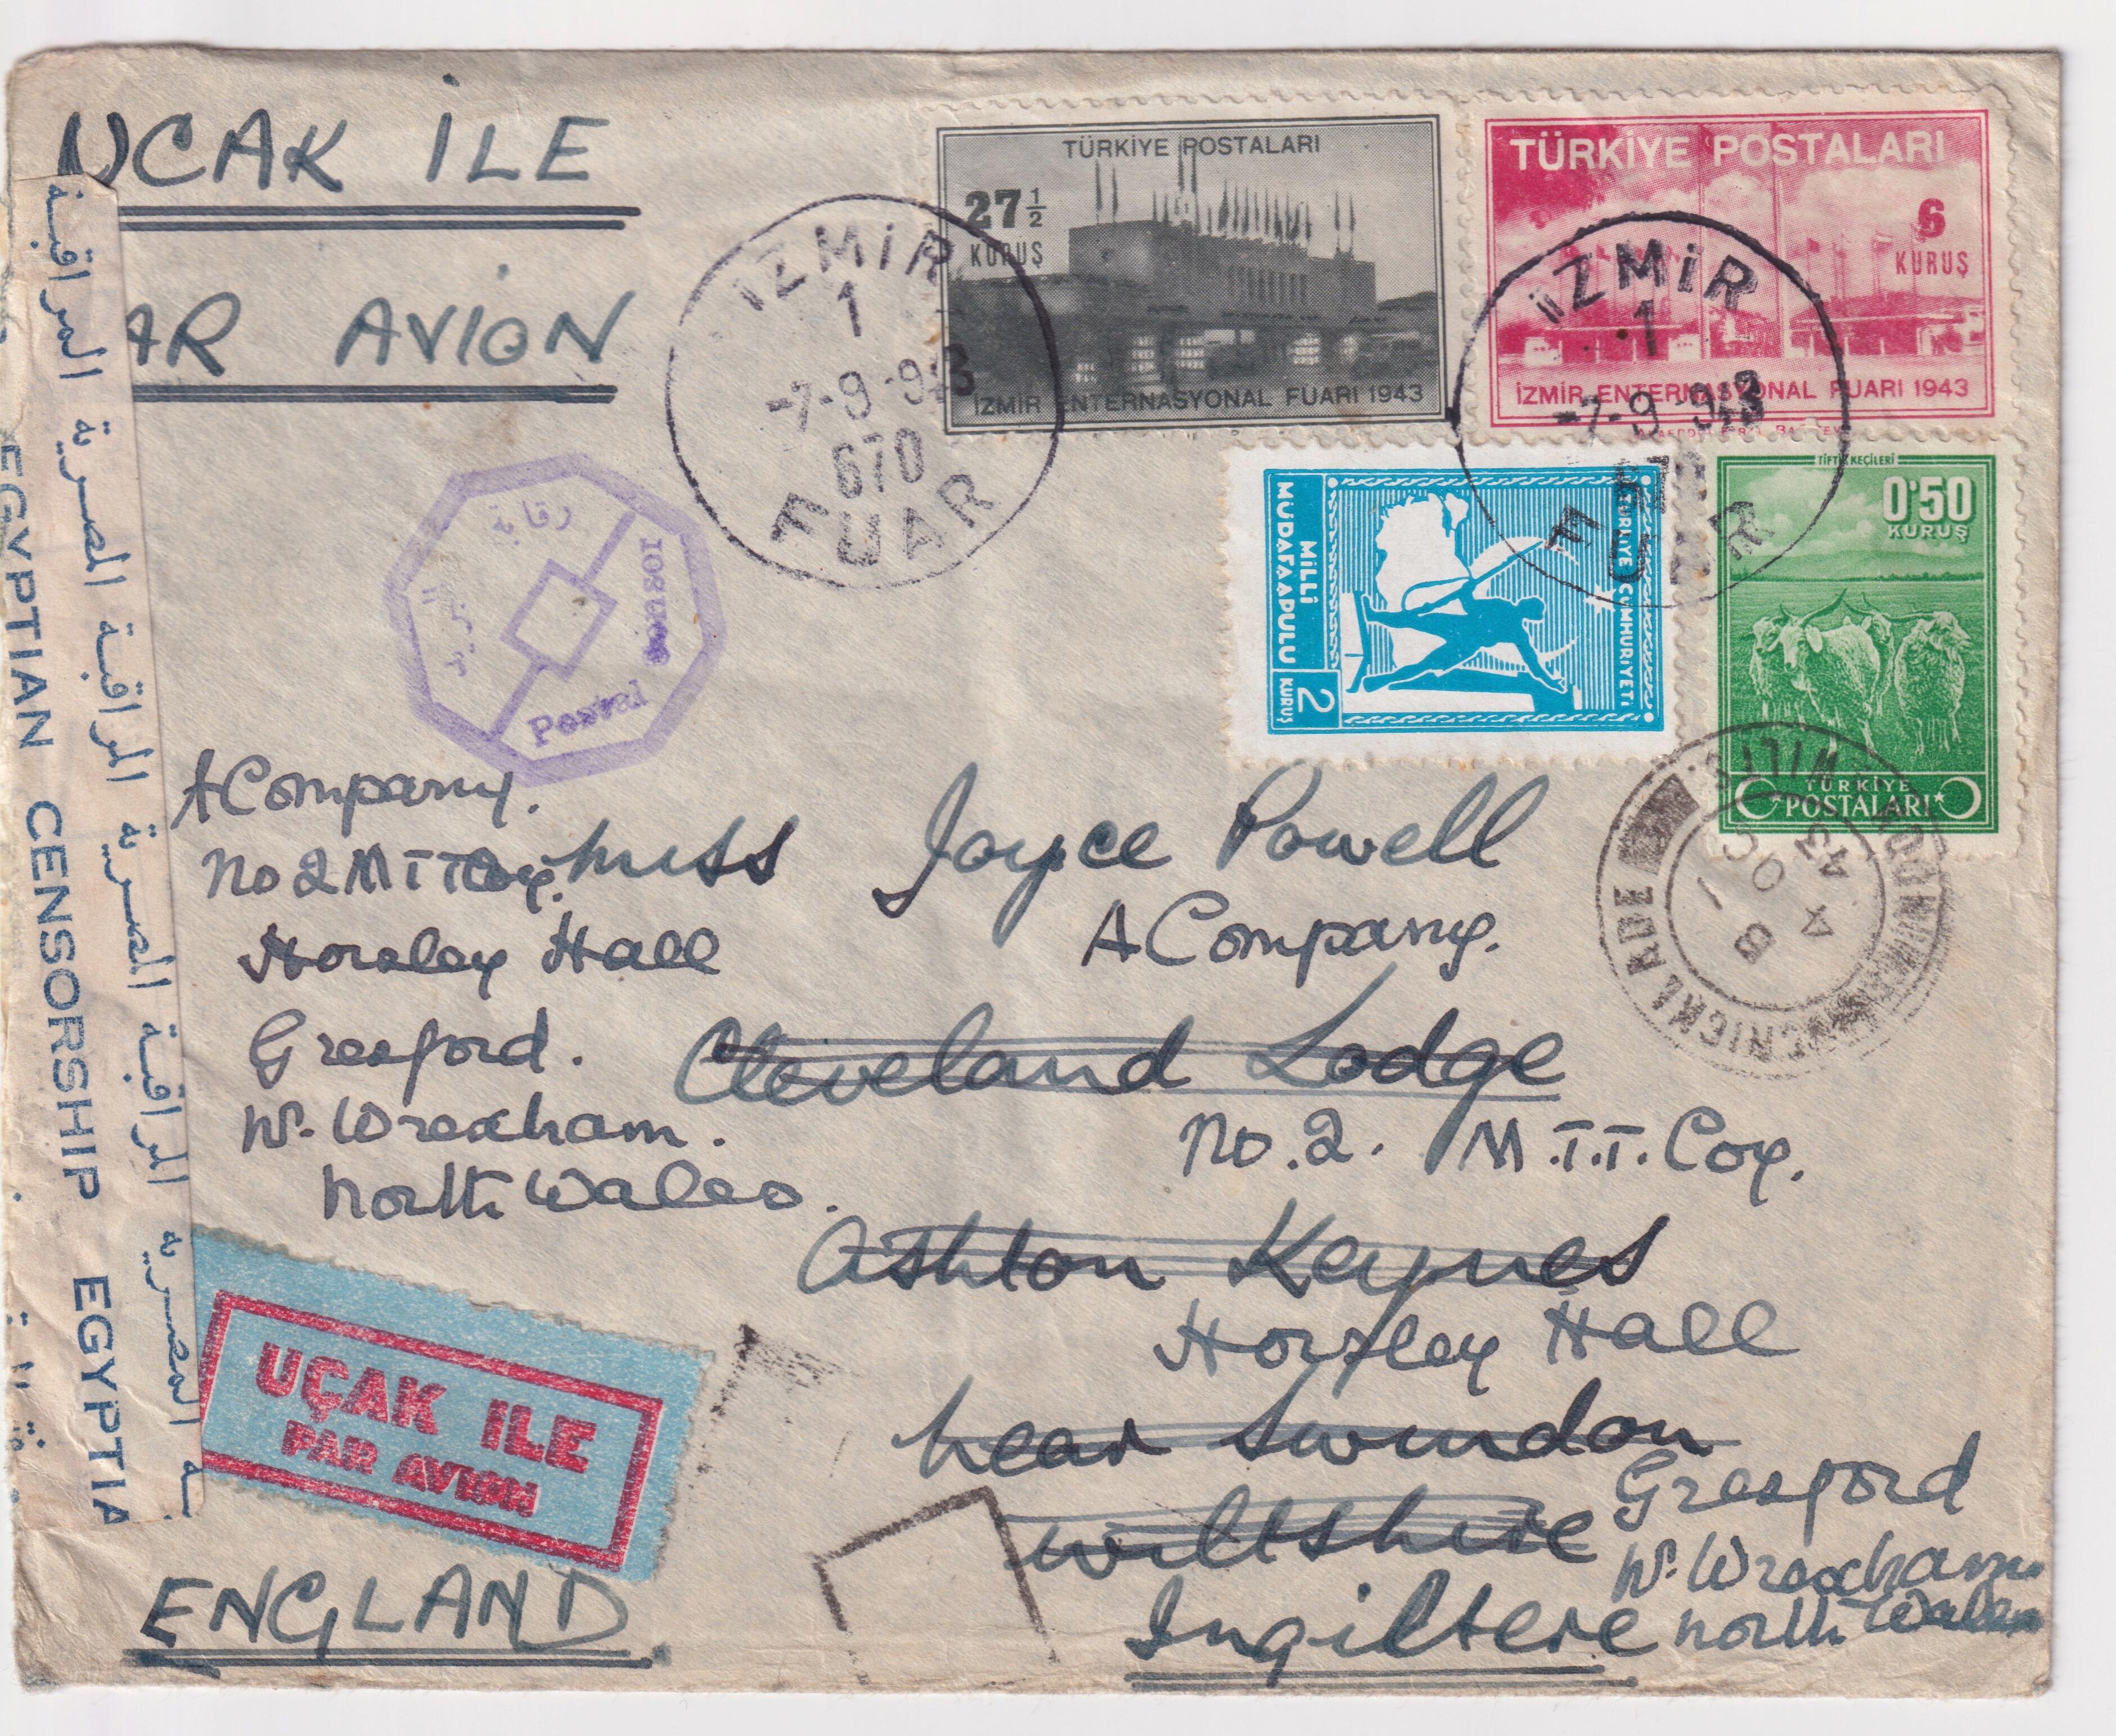 UCAK İLE
AR AVION
TÜRKİYE POSTALARI
27½
KURUŞ
İZMİR ENTERNASYONAL FUARI 1943
TÜRKİYE POSTALARI
6
KURUŞ
İZMİR ENTERNASYONAL FUARI 1943
İZMİR
1
-7-9-943
670
FUAR
İZMİR
1
-7-9-943
FUAR
TÜRKİYE CUMHURİYETİ
MİLLİ
MÜDAFAA PULU
2
KURUŞ
TİFTİK KEÇİLERİ
0'50
KURUŞ
TÜRKİYE
POSTALARI
رقابة
البريد
Postal Censor
WILTS
8 OC
43
المراقبة المصرية المراقبة المصرية المراقبة المصرية
EGYPTIAN CENSORSHIP EGYPTIA
A Company.
No 2 M T T Coy.
Horsley Hall
Gresford.
N. Wrexham.
North Wales.
Miss Joyce Powell
A Company.
Cleveland Lodge
No. 2. M.T.T. Coy.
Ashton Keynes
Horsley Hall
near Swindon
Gresford
Wiltshire
N. Wrexham
İngiltere
North Wales
UÇAK ILE
PAR AVION
ENGLAND.